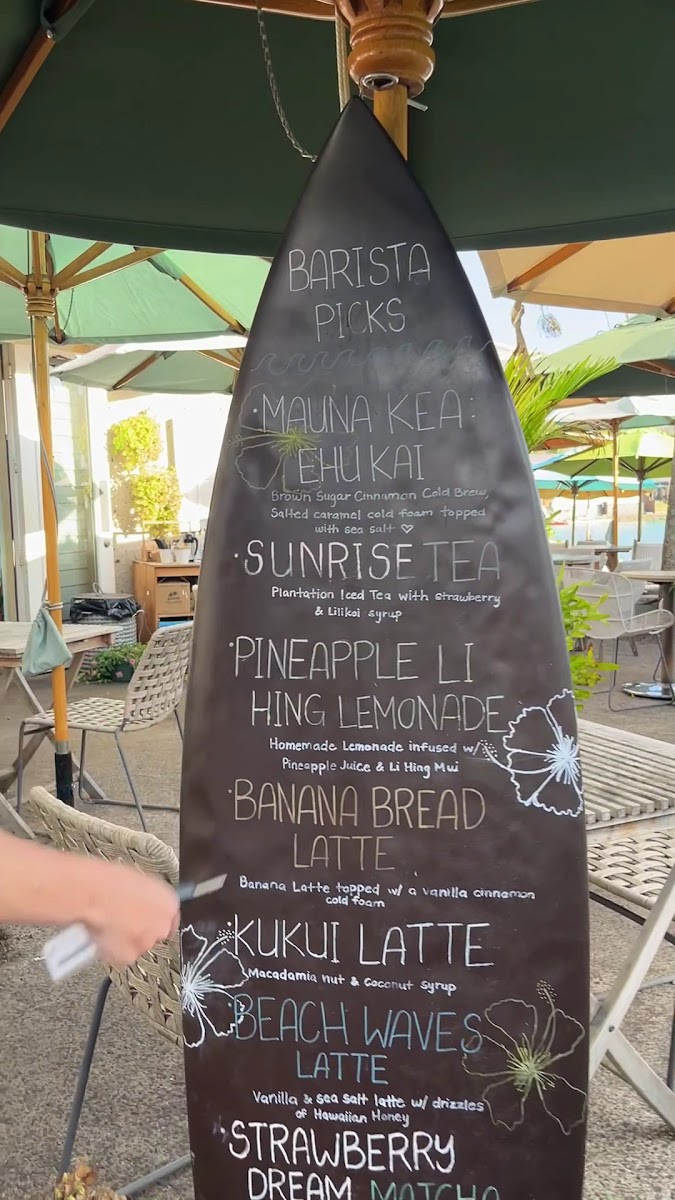 BARISTA
PICKS
·MAUNA KEA:
EHU KAI
Brown Sugar Cinnamon Cold Brew,
Salted caramel cold foam topped
with sea salt ♡
·SUNRISE TEA
Plantation Iced Tea with strawberry
& Lilikoi syrup
·PINEAPPLE LI
HING LEMONADE
Homemade Lemonade infused w/
Pineapple Juice & Li Hing Mui
·BANANA BREAD
LATTE
Banana Latte topped w/ a vanilla cinnamon
cold foam
·KUKUI LATTE
Macadamia nut & Coconut syrup
·BEACH WAVES
LATTE
Vanilla & sea salt latte w/ drizzles
of Hawaiian Honey
·STRAWBERRY
DREAM MATCHA